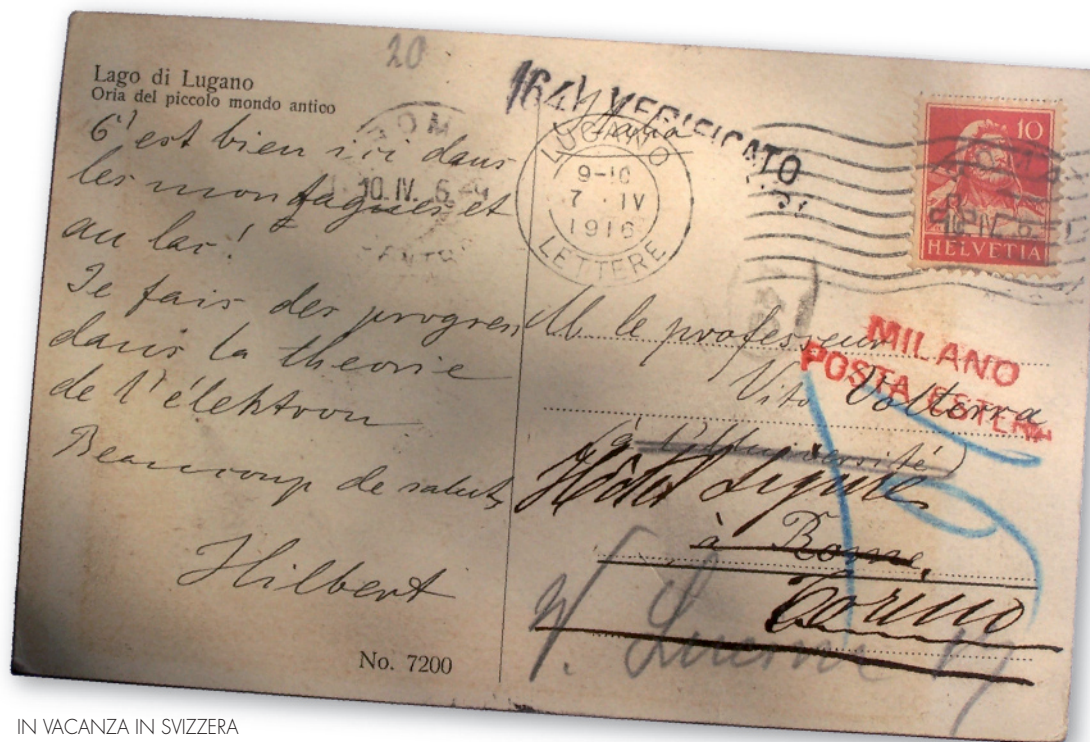 20
Lago di Lugano
Oria del piccolo mondo antico
C'est bien ici dans
les montagnes et
au lac!
Je fais des progres
dans la theorie
de l'élektron
Beaucoup de saluts
Hilbert
No. 7200
164 VERIFICATO
LUGANO
9-10
7 · IV
1916
LETTERE
ROMA
10.IV.6
CENTRO
10
HELVETIA
MILANO
POSTA ESTERA
M. le professeur
Vito Volterra
(à l'Université)
Hôtel Ligure
à Rome,
Torino
IN VACANZA IN SVIZZERA